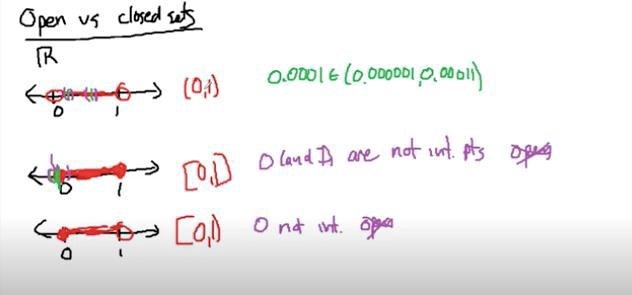 Open vs closed sets
ℝ
0 1 (0,1) 0.0001 ∈ (0.000001, 0.00011)
0 1 [0,1] 0 (and 1) are not int. pts open
0 1 [0,1) 0 not int. open